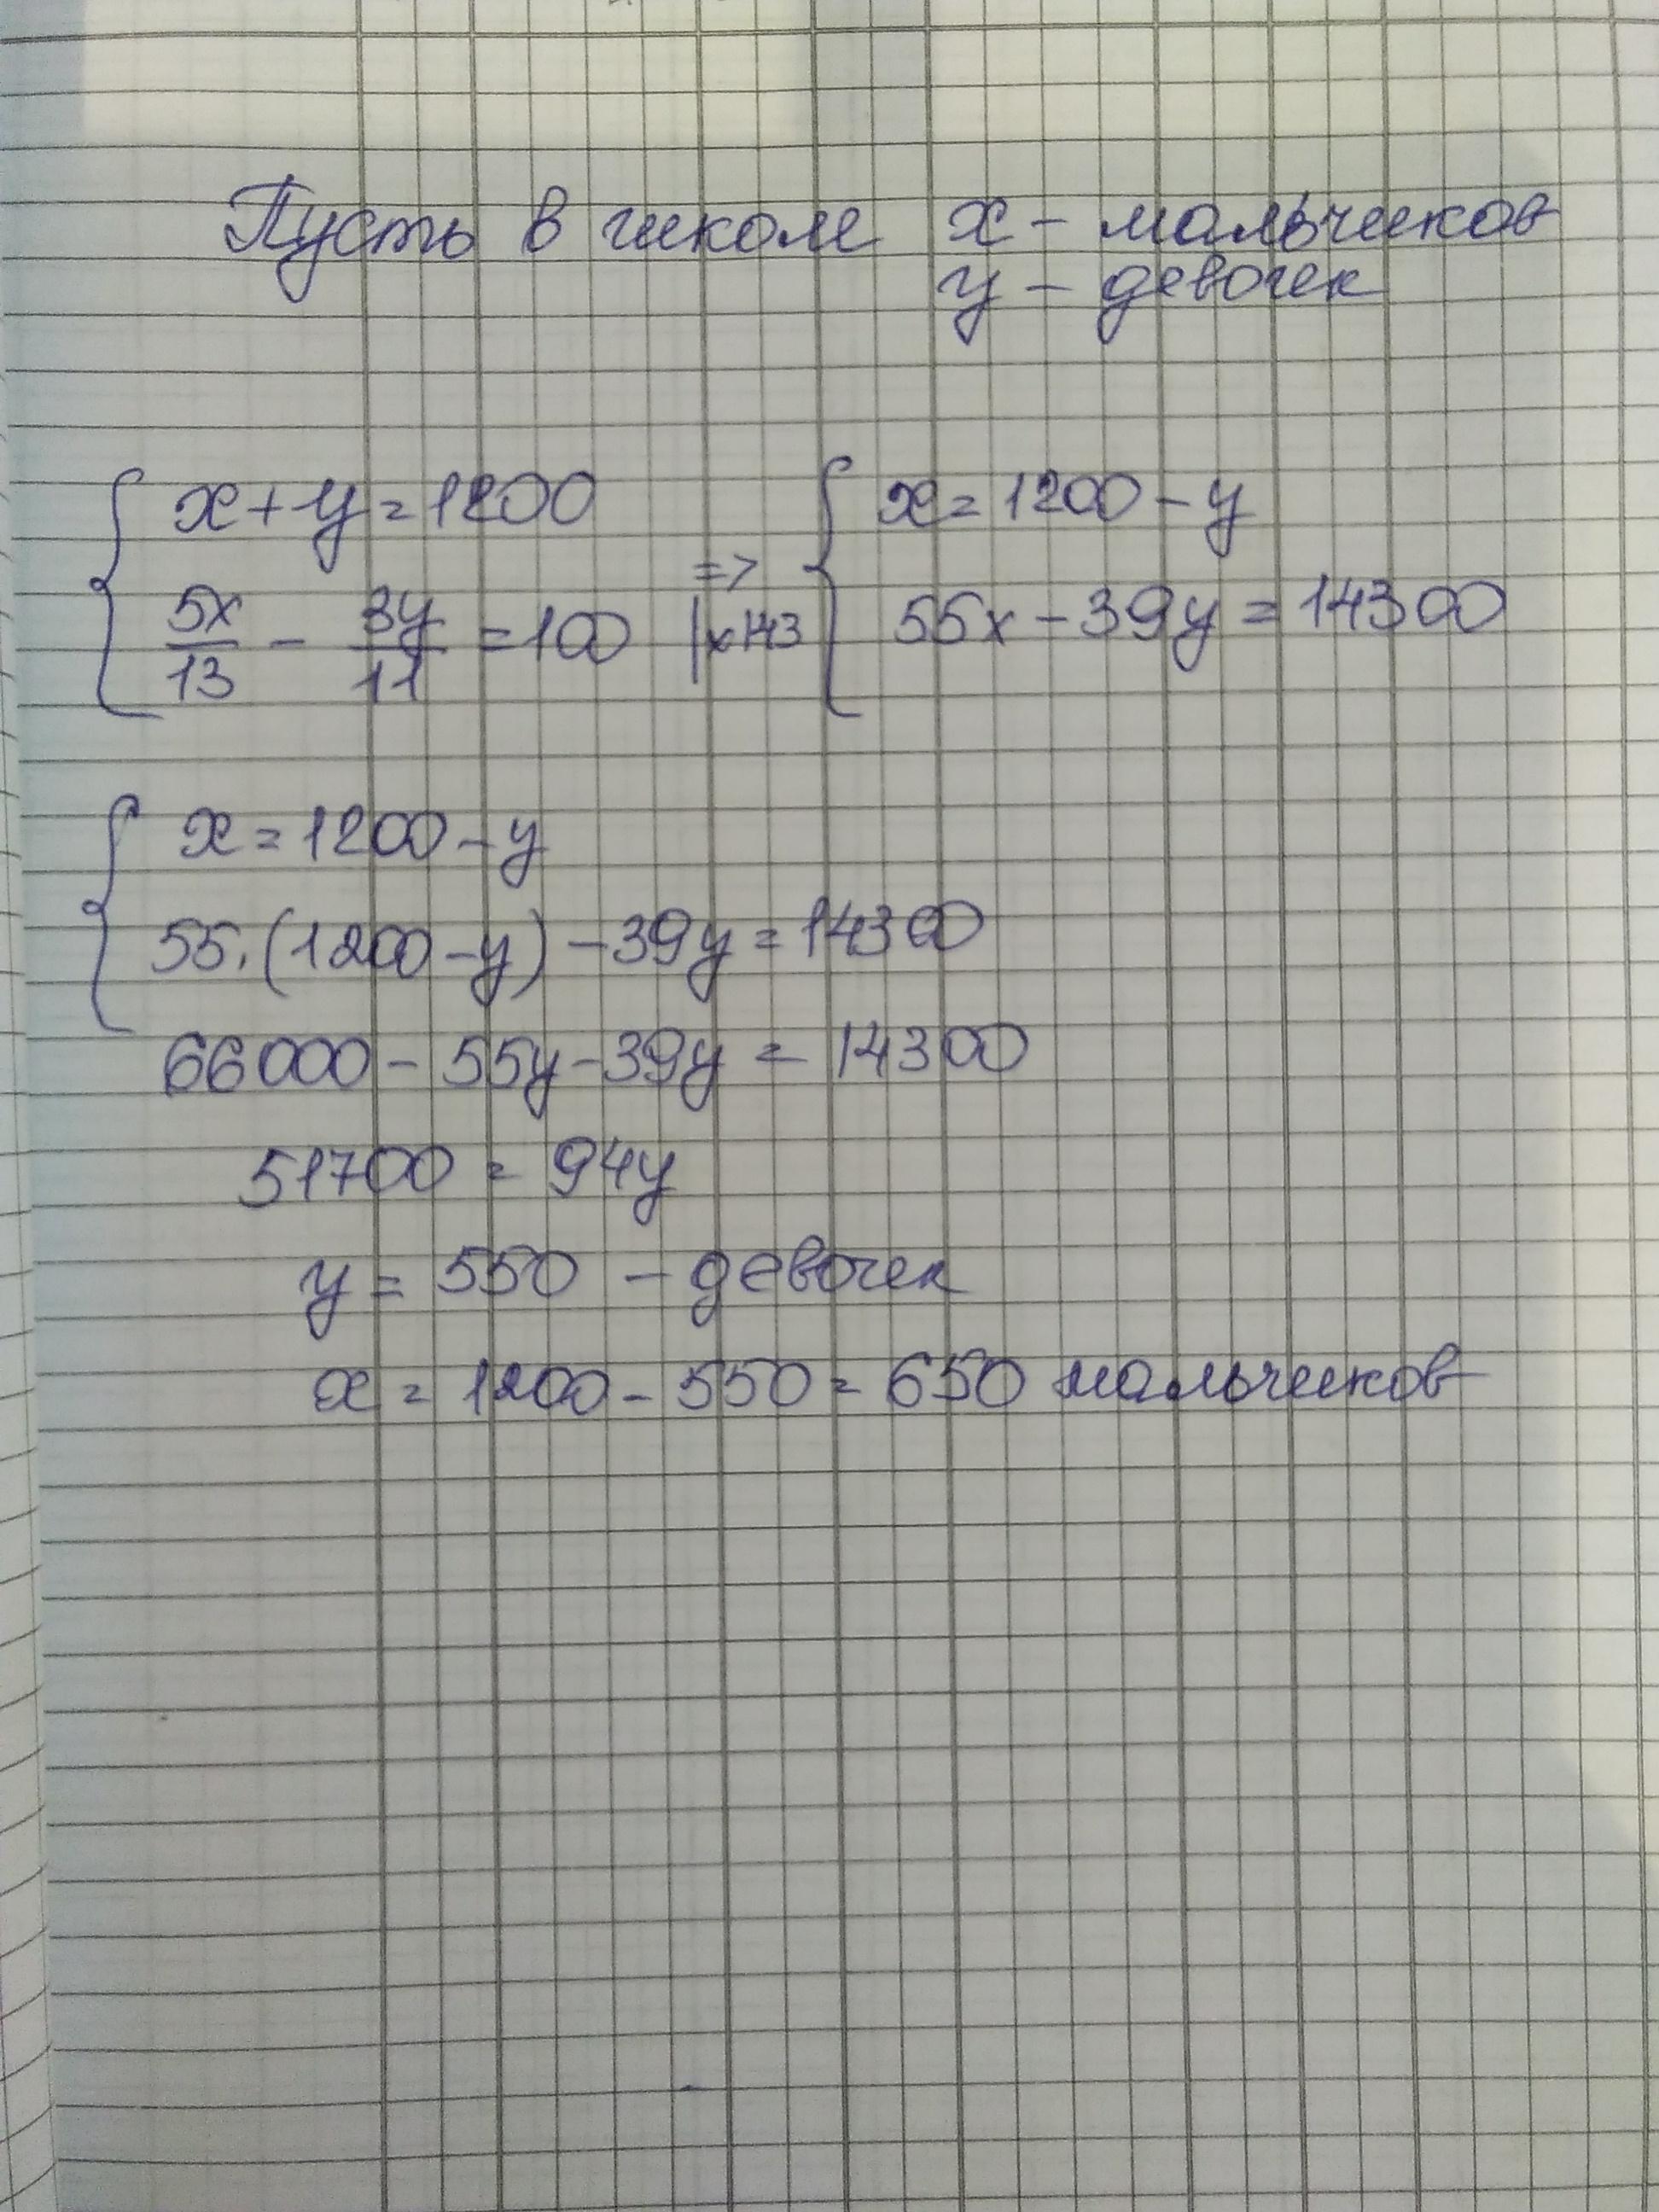 Пусть в школе x - мальчиков
y - девочек
x + y = 1200 => x = 1200 - y
5x/13 - 3y/11 = 100 |x143 55x - 39y = 14300
x = 1200 - y
55·(1200 - y) - 39y = 14300
66000 - 55y - 39y = 14300
51700 = 94y
y = 550 - девочек
x = 1200 - 550 = 650 мальчиков